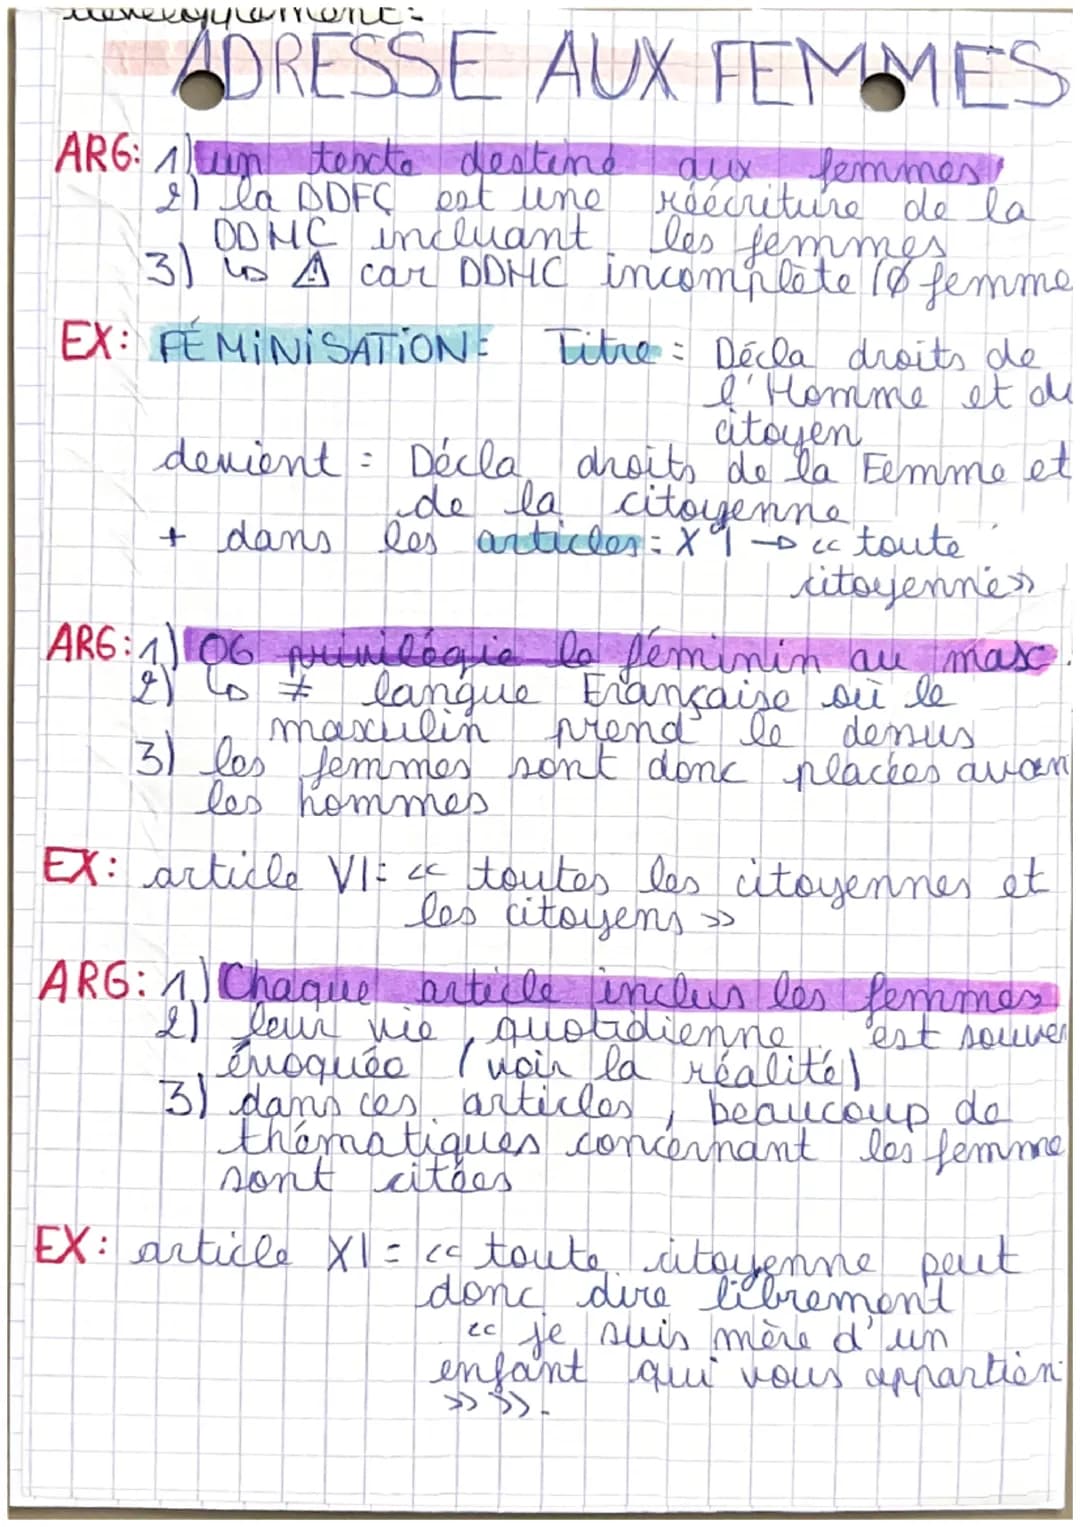 développement:
ADRESSE AUX FEMMES
ARG: 1) un texte destiné aux femmes
2) la DDFC est une réécriture de la
DDHC incluant les femmes
3) ↳ ⚠ car DDHC incomplète (Ø femme
EX: FÉMINISATION: Titre: Décla droits de
l'Homme et du
citoyen
devient: Décla droits de la Femme et
de la citoyenne
+ dans les articles: X
I → « toute
citoyenne »
ARG: 1) OG privilégie le féminin au masc.
2) ↳ ≠ langue Française où le
masculin prend le dessus
3) les femmes sont donc placées avan
les hommes
EX: article VI: « toutes les citoyennes et
les citoyens »
ARG: 1) Chaque article inclus les femmes
2) leur vie quotidienne est souven
évoquée (voir la réalité)
3) dans ces articles, beaucoup de
thématiques concernant les femme
sont citées
EX: article XI = « toute citoyenne peut
donc dire librement
« je suis mère d'un
enfant qui vous appartien
» ».